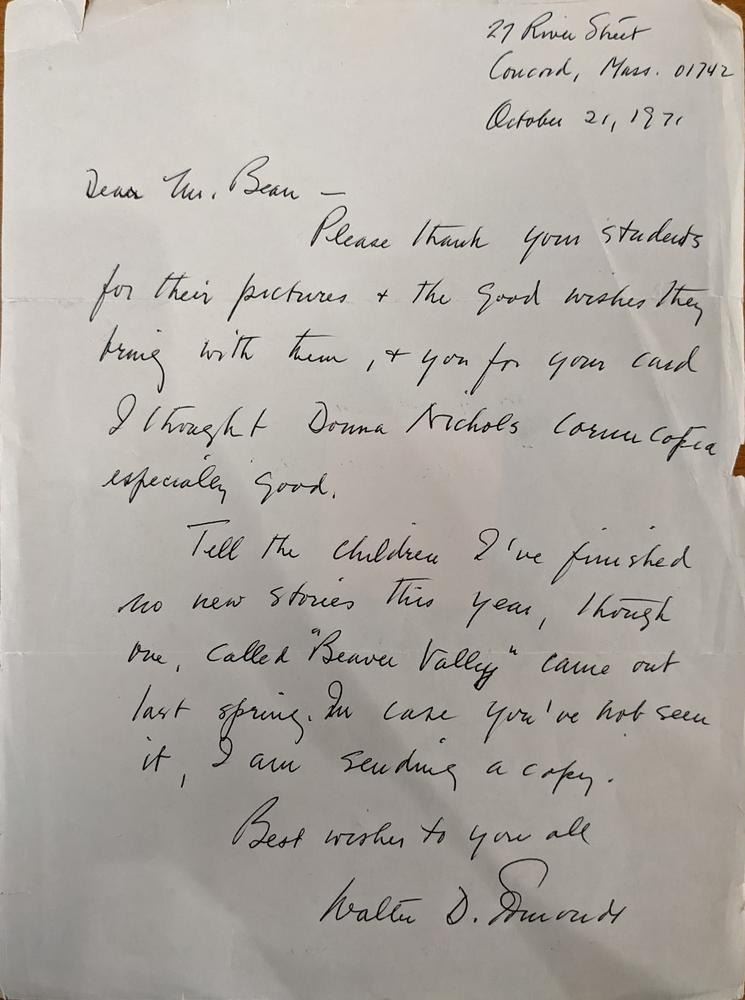 27 River Street
Concord, Mass. 01742
October 21, 1971
Dear Mr. Bean —
Please thank your students
for their pictures + the good wishes they
bring with them, + you for your card
I thought Donna Nichols Cornucopia
especially good.
Tell the children I've finished
no new stories this year, though
one, called "Beaver Valley" came out
last spring. In case you've not seen
it, I am sending a copy.
Best wishes to you all
Walter D. Edmonds